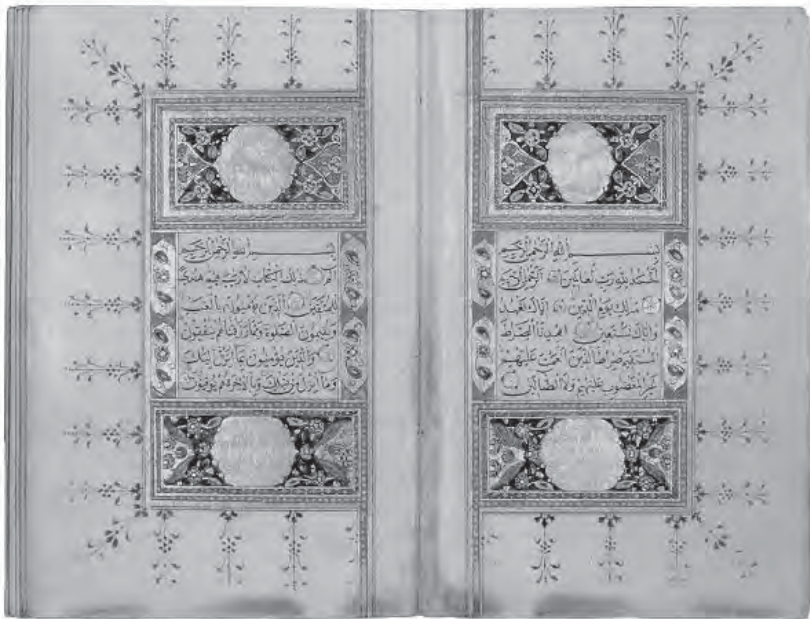 بسم الله الرحمن الرحيم
الحمد لله رب العالمين الرحمن الرحيم
ملك يوم الدين اياك نعبد
واياك نستعين اهدنا الصراط
المستقيم صراط الذين انعمت عليهم
غير المغضوب عليهم ولا الضالين
بسم الله الرحمن الرحيم
الم ذلك الكتاب لا ريب فيه هدى
للمتقين الذين يؤمنون بالغيب
ويقيمون الصلوة ومما رزقناهم ينفقون
والذين يؤمنون بما انزل اليك
وما انزل من قبلك وبالاخرة هم يوقنون